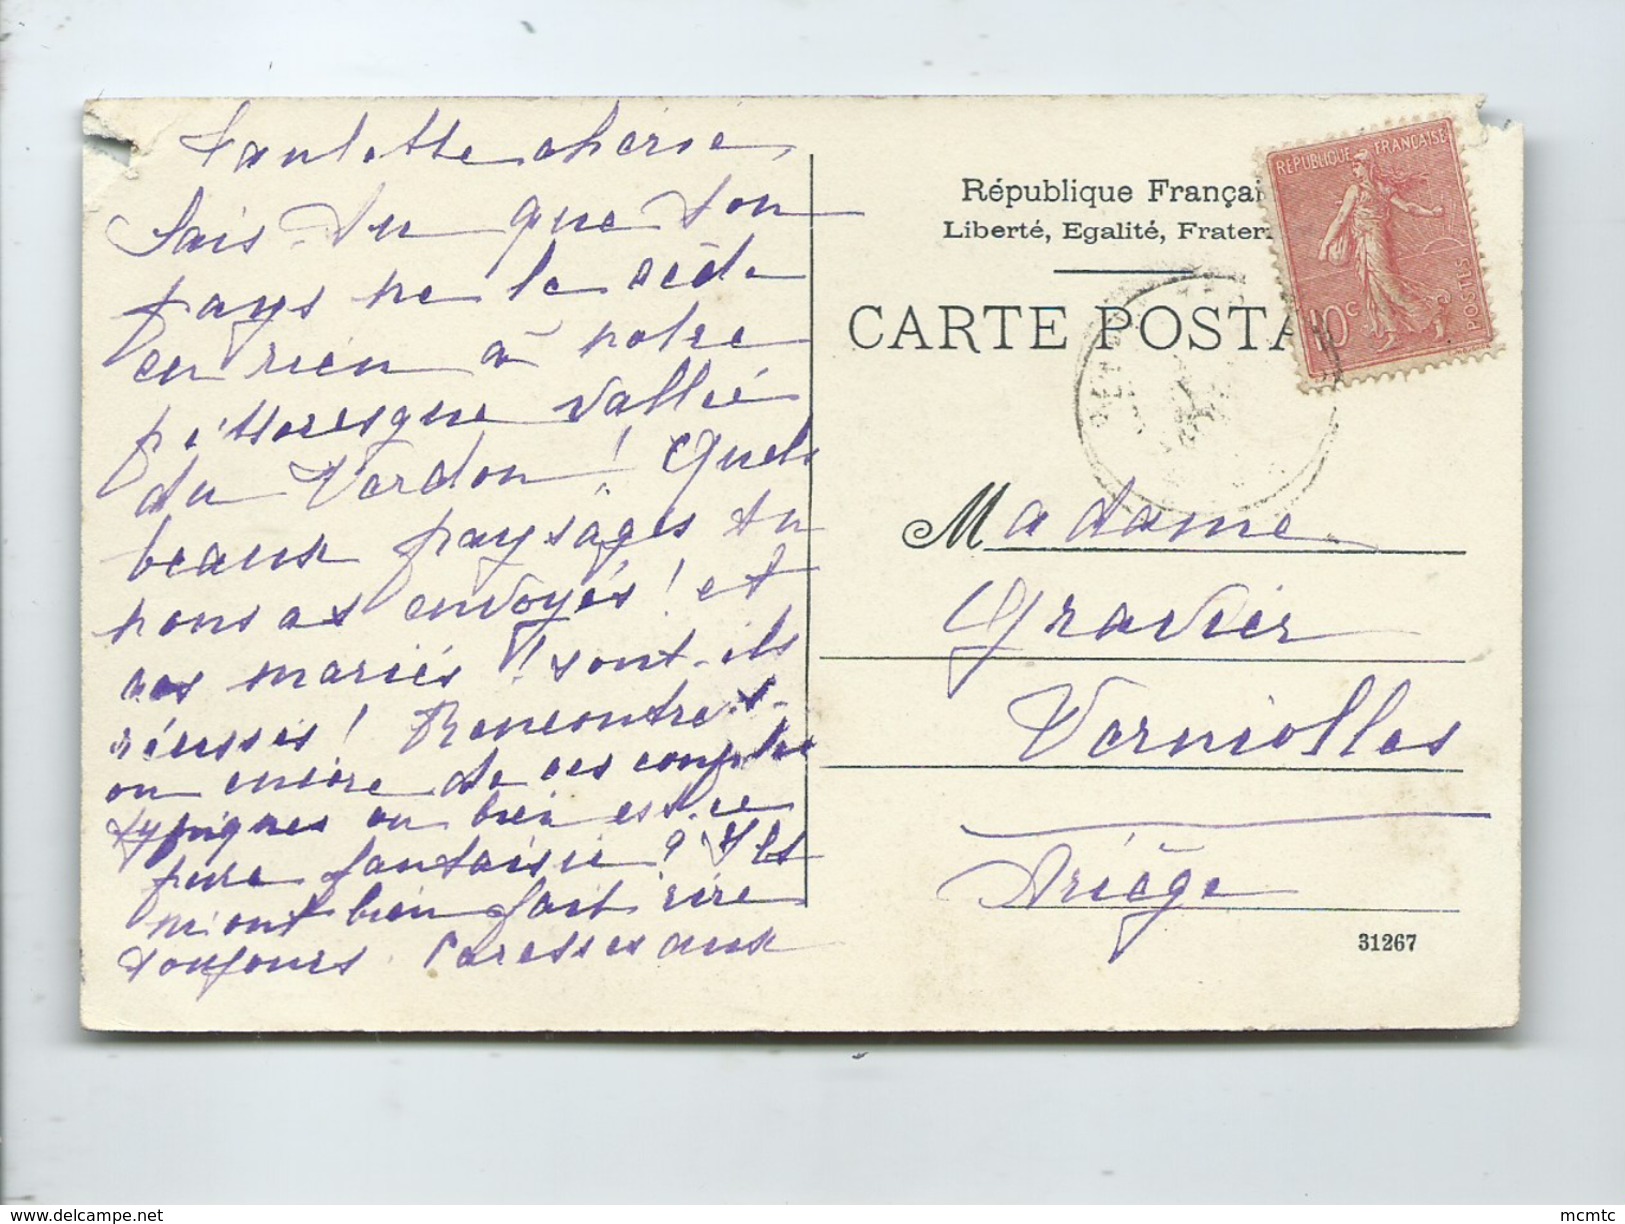 Paulette chérie,
Sais-tu que ton
pays ne le cède
en rien à notre
pittoresque vallée
du Verdon ! Quels
beaux paysages tu
nous as envoyés ! et
ces mariés !! sont-ils
réussis ! Rencontre-t-
on encore de ces couples
typiques ou bien est-ce
pure fantaisie ? Ils
m'ont bien fait rire
toujours. Caresses aux
République Françai
Liberté, Egalité, Frater
CARTE POSTA
REPUBLIQUE FRANÇAISE
10c
POSTES
Madame
Gravier
Verniolles
Ariège
31267
delcampe.net
mcmtc